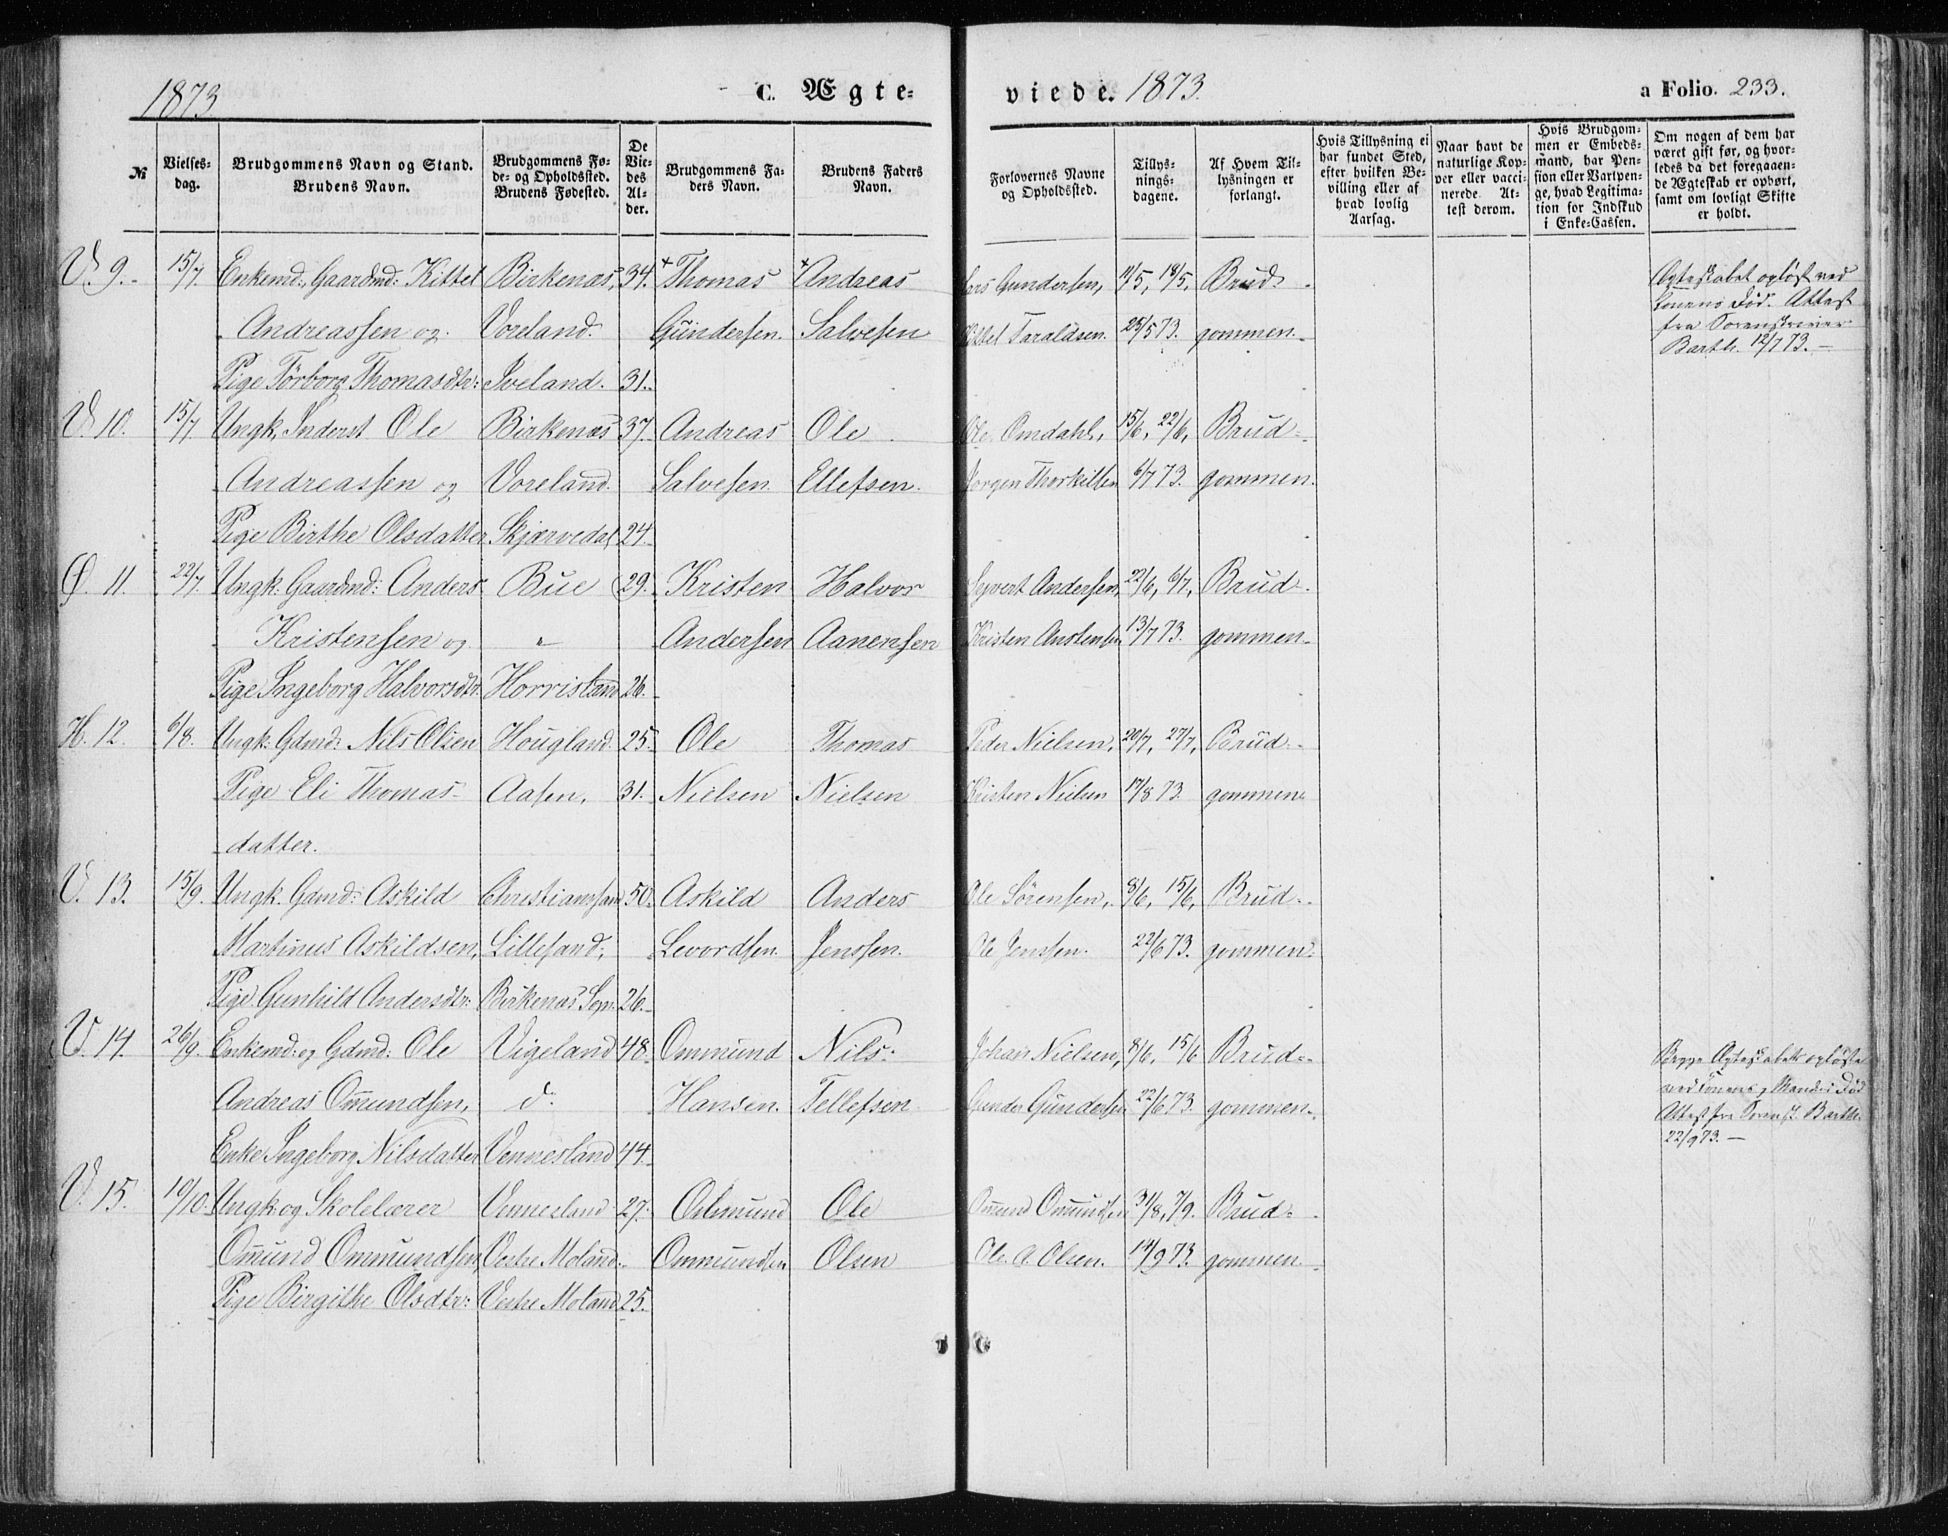 1873
C. Ægte-
viede. 1873.
a Folio. 233.
№
Vielses-
dag.
Brudgommens Navn og Stand.
Brudens Navn.
Brudgommens Fø-
de- og Opholdssted.
Brudens Fødested.
De
Vie-
des
Al-
der.
Brudgommens Fa-
ders Navn.
Brudens Faders
Navn.
Forlovernes Navne
og Opholdssted.
Tillys-
nings-
dagene.
Af Hvem Til-
lysningen er
forlangt.
Hvis Tillysning ei
har fundet Sted,
efter hvilken Be-
villing eller af
hvad lovlig
Aarsag.
Naar havt de
naturlige Kop-
per eller vacci-
nerede. At-
test derom.
Hvis Brudgom-
men er Embeds-
mand, har Pen-
sion eller Vartpen-
ge, hvad Legitima-
tion for Indskud
i Enke-Cassen.
Om nogen af dem har
været gift før, og hvor-
ledes da det foregaaen-
de Ægteskab er ophørt,
samt om lovligt Skifte
er holdt.
V. 9. 15/7. Enkemd: Gaardmd: Kittel Birkenæs, 34. + Thomas + Andreas Lars Gundersen, 11/5, 18/5, Brud- Ægteskabet opløst ved
Andreassen og Voreland. Gundersen. Salvesen Kittel Taraldsen. 25/5 73. gommen. Konens Død. Attest
fra Sorenskriver
Barth. 12/7 73.
Pige Törborg Thomasdtr: Iveland. 31.
V. 10. 15/7 Ungk. Inderst Ole Birkenæs 37. Andreas Ole Ole Omdahl, 15/6, 22/6, Brud-
Andreassen og Voreland. Salvesen. Ellefsen. Jørgen Thorkilsen 6/7 73. gommen.
Pige Birthe Olsdatter Skjærvedal 24.
Ø. 11. 22/7. Ungk: Gaardmd: Anders Bue 29. Kristen Halvor Syvert Andersen, 22/6, 6/7, Brud-
Kristensen og " Andersen Aanensen Kristen Anstensen 13/7 73. gommen.
Pige Ingeborg Halvorsdtr. Horrisland 26.
H. 12. 6/8. Ungk: Gdmd: Nils Olsen Hougland. 25. Ole Thomas Peder Nielsen, 20/7, 27/7, Brud-
Pige Eli Thomas- Aasen, 31. Nielsen Nielsen Kristen Nielsen 17/8 73. gommen
datter.
V. 13. 15/9. Ungk. Gdmd: Askild Christianssand 50. Askild Anders Ole Sörensen, 8/6, 15/6, Brud-
Martinus Askildsen, Lillesand; Levordsen. Jenssen. Ole Jenssen. 22/6 73. gommen.
Pige Gunhild Andersdtr: Birkenæs Sogn. 26.
V. 14. 26/9. Enkemd: og Gdmd: Ole Vigeland 48. Ommund Nils Johan Nielsen, 8/6, 15/6 Brud- Begge Ægteskabets opløste
Andreas Ommundsen, d: Hansen. Tellefsen. Gunder Gundersen 22/6 73. gommen. ved Konens og Mandens Død
Attest fra Sorensk. Barth.
22/9 73.
Enke Ingeborg Nilsdatter Vennesland 44.
V. 15. 10/10. Ungk: og Skolelærer Vennesland 27. Ommund Ole Ommund Ommundsen 31/8, 7/9. Brud-
Ommund Ommundsen, Vestre Moland. Ommundsen Olsen Ole A. Olsen. 14/9 73. gommen
Pige Birgithe Olsdtr: Vestre Moland 25.